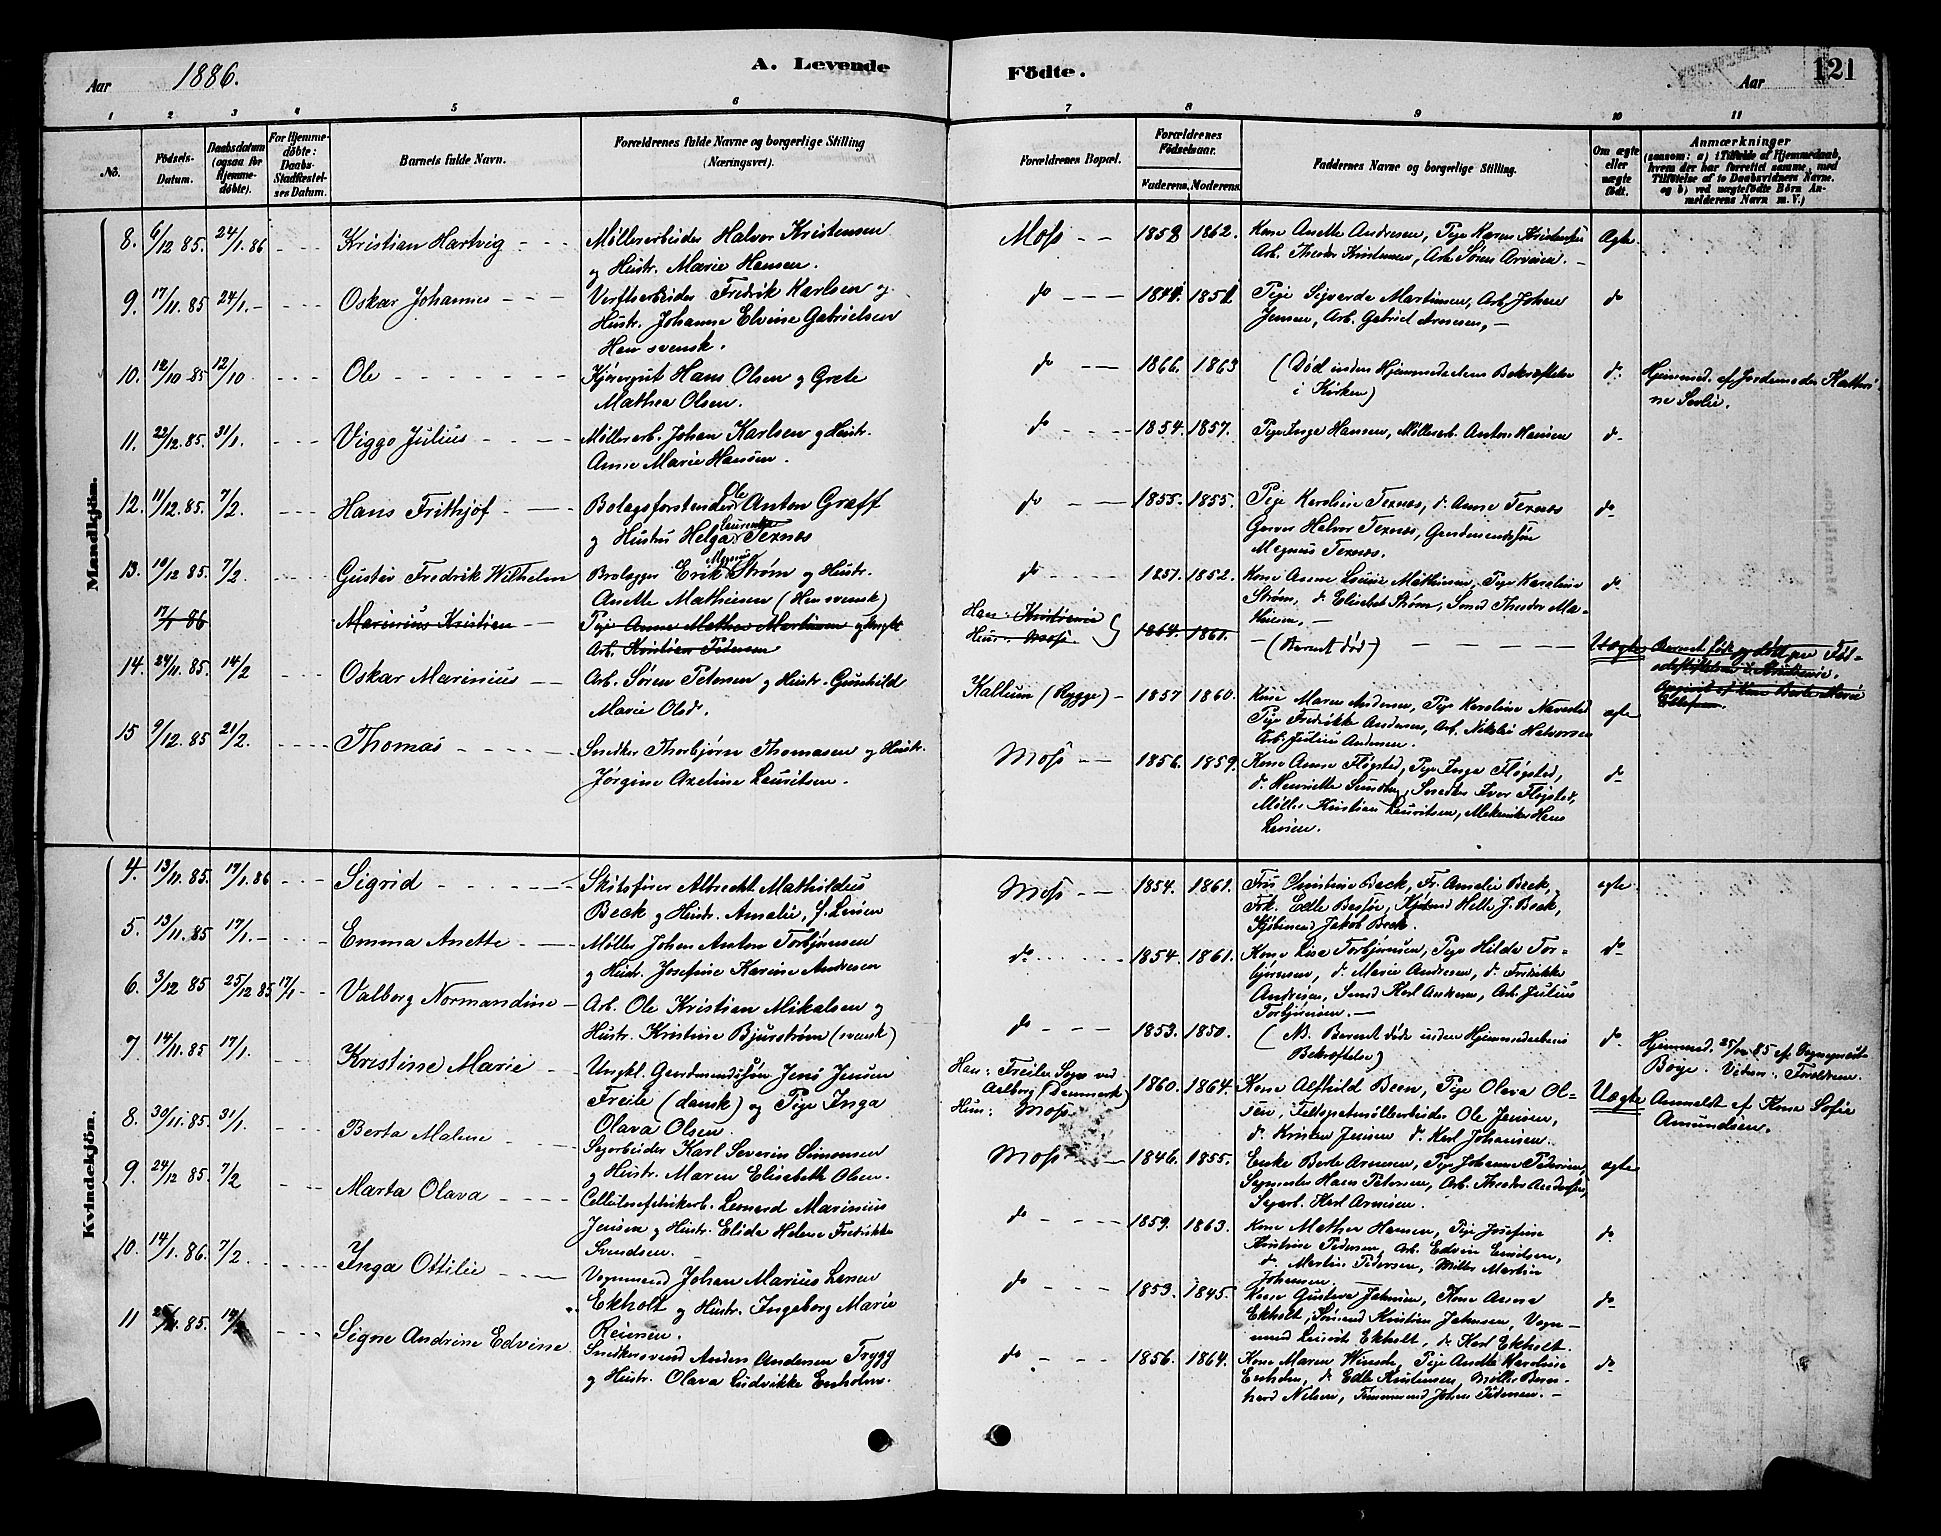 Aar 1886. A. Levende Födte. Aar 121
1 2 3 4 5 6 7 8 9 10 11
No. Födsels-Datum. Daabsdatum (ogsaa for Hjemmedöbte). For Hjemmedöbte: Daabs-Stadfæstelses Datum. Barnets fulde Navn. Forældrenes fulde Navne og borgerlige Stilling (Næringsvei). Forældrenes Bopæl. Forældrenes Födselsaar. Faderens. Moderens. Faddernes Navne og borgerlige Stilling. Om ægte eller uægte födt. Anmærkninger (saasom: a) i Tilfælde af Hjemmedaab, hvem der har forrettet samme, med Tilföielse af to Daabsvidners Navne. og b) ved uægtefödte Börn Anmelderens Navn m. V.)
Mandkjön.
8. 6/12 85. 24/1. 86 Kristian Hartvig Möllerarbeider Halvor Kristensen Moss 1858 1862. Kone Anette Andresen, Pige Karen Kristensen Ægte.
og Hustr. Marie Hansen. Arb. Theodor Kristensen, Arb. Søren
9. 17/11. 85 24/1. Oskar Johannes Verftsarbeider Fredrik Karlsen og do 1851 Pige Sigvarda Martinsen, Arb. Johan do
Hustr. Johanne Elvine Gabrielsen Jensen, Arb. Gabriel Arnesen,
Han svensk.
10. 12/10 85 12/10 Ole Kjøregut Hans Olsen og Grete do 1866. 1863 (Død inden Hjemmedaabens Bekræftelse do Hjemmed. af Jordemoder
Mathea Olsen. i Kirken)
11. 23/12. 85. 31/1. Viggo Julius Møllerarb. Johan Karlsen og Hustr. do 1854. 1857. Pige Inga Hansen, Møllerarb. Anton Hansen do
Anne Marie Hansen.
12. 11/12. 85. 7/2. Hans Frithjof Ole Anton Graff do 1855. 1855. Pige Karoline Texnæs, do Anne Texnæs do
og Hustru Helga Laurentze Texnæs Garver Halvor Texnæs, Gaardmandssøn
Magnus Texnæs.
13. 10/12 85. 7/2. Gustav Fredrik Wilhelm Erik Magnus Strøm og Hustr. do 1851. 1852. Kone Anne Lovise Mathisen, Pige Karoline do
Anette Mathiesen (Han svensk) Strøm, do Elisabet Strøm,
17/1 86 Marinius Kristian Pige Anne Mathea Martinsen og Han: 1864. 1861. (Barnet død) Uægte
Arb. Kristian Pedersen
14. 24/11. 85. 14/2 Oskar Marinius Arb. Søren Petersen og Hustr. Gunhild Kallum (Rygge) 1857 1860. Kone Maren Andersen, Pige Karoline ægte
Marie Olsd. Pige Fredrikke Andersen, Arb. Nikolai Halvorsen
Arb. Julius Andersen.
15 9/12. 85 21/2. Thomas Snedker Thorbjørn Thomasen og Hustr. Moss 1856. 1859. Kone Anne Fløgsted, Pige Inga Fløgsted, do
Jørgine Axeline Lauritsen. do Henriette Sundby, Snedker Iver Fløgsted,
Møller Kristian Lauritsen, Mekaniker Hans
Larsen.
Kvindekjön.
4. 13/11. 85. 17/1. 86 Sigrid Skibsfører Albrecht Mathildus Moss 1854. 1861. Fru Christine Beck, Fr. Amalie Beck, ægte
Beck og Hustr. Amalie, f. Larsen Jakob Beck.
5. 13/11. 85 17/1. Emma Anette Møller Johan Anton Torbjørnsen do 1854. 1861. Kone Lise Torbjørnsen, Pige Hilda Torbjørnsen, do
og Hustr. Josefine Karine Andresen do Marie Andresen, do Fredrikke
Andresen, Arb. Julius
Torbjørnsen.
6. 3/12 85 25/12 85 17/1 Valborg Normandine Arb. Ole Kristian Mikalsen og do 1853. 1850. (NB. Barnet døde inden Hjemmedaabens do Hjemmed. 25/12 85 af
Hustr. Kristine Bjurstrøm (svensk) Bekræftelse) Boye. Vidner: Forældrene.
7 14/11. 85 17/1. Kristine Marie Ungkl. Gaardmandssøn Jens Jensen Han: Freilev Sogn ved Aalborg (Danmark) Hun: Moss 1860. 1864. Kone Alfhild Been, Pige Olava Olsen, Uægte Anmeldt af Kone Sofie Amundsen.
Freile (dansk) og Pige Inga Ole Jensen,
Olava Olsen. do Kristen Jensen do Karl Johansen.
8. 30/11. 85. 31/1. Berta Malene Sagarbeider Karl Severin Simonsen Moss 1846. 1855. Enke Berte Arnesen, Pige Johanne Pedersen, ægte
og Hustr. Maren Elisabeth Olsen. Sagmester Hans Petersen, Arb. Theodor Andersen,
Sagarb. Karl Arnesen.
9. 24/12 85. 7/2 Marta Olava Cellulosefabrikarb. Leonard Marinius do 1859. 1863. Kone Mathea Hansen, Pige Josefine do
Jensen og Hustr. Elida Helene Fredrikke Kristine Pedersen, Arb. Edvin Emilsen,
Svendsen. do Martin Pedersen, Møller Martin
Johansen
10. 14/1. 86. 7/2. Inga Ottilie Vognmand Johan Marius Larsen do 1853. 1845. Kone Gustava Johnsen, Kone Anna do
Ekholt og Hustr. Ingeborg Marie Ekholt, Sømand Kristian Johnsen, Vognmand
Reiersen. Laurits Ekholt, do Karl Ekholt.
11 85. Signe Andrine Edvine Snedkersvend Anders Andersen Trygg do 1856. 1864. Kone Maren Pige Karoline do
og Hustr. Olava Ludvikke Enholm. Enholm, do Edle Kristensen, Møller Bernhard
Nilsen, Tømmermand Johan Pedersen.